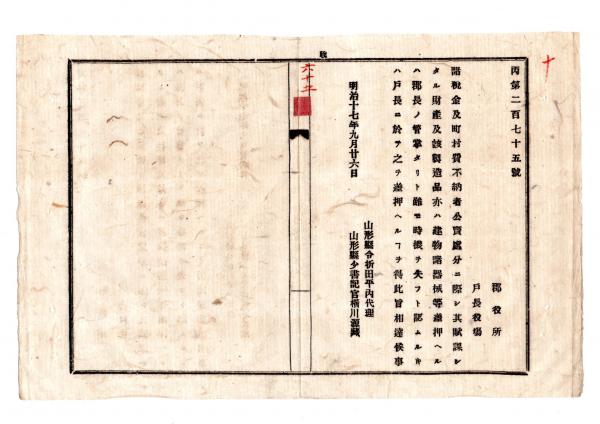 十
丙第二百七十五號
郡役所
戸長役場
諸税金及町村費不納者公賣處分ニ際シ其賦課シ
タル財産及該製造品亦ハ建物諸器械等差押ヘル
ハ郡長ノ管掌タリト雖モ時機ヲ失フト認ムル片
ハ戸長ニ於テ之ヲ差押ヘルヿヲ得此旨相達候事
明治十七年九月廿六日
山形縣令折田平内代理
山形縣少書記官桶川源藏
六十二